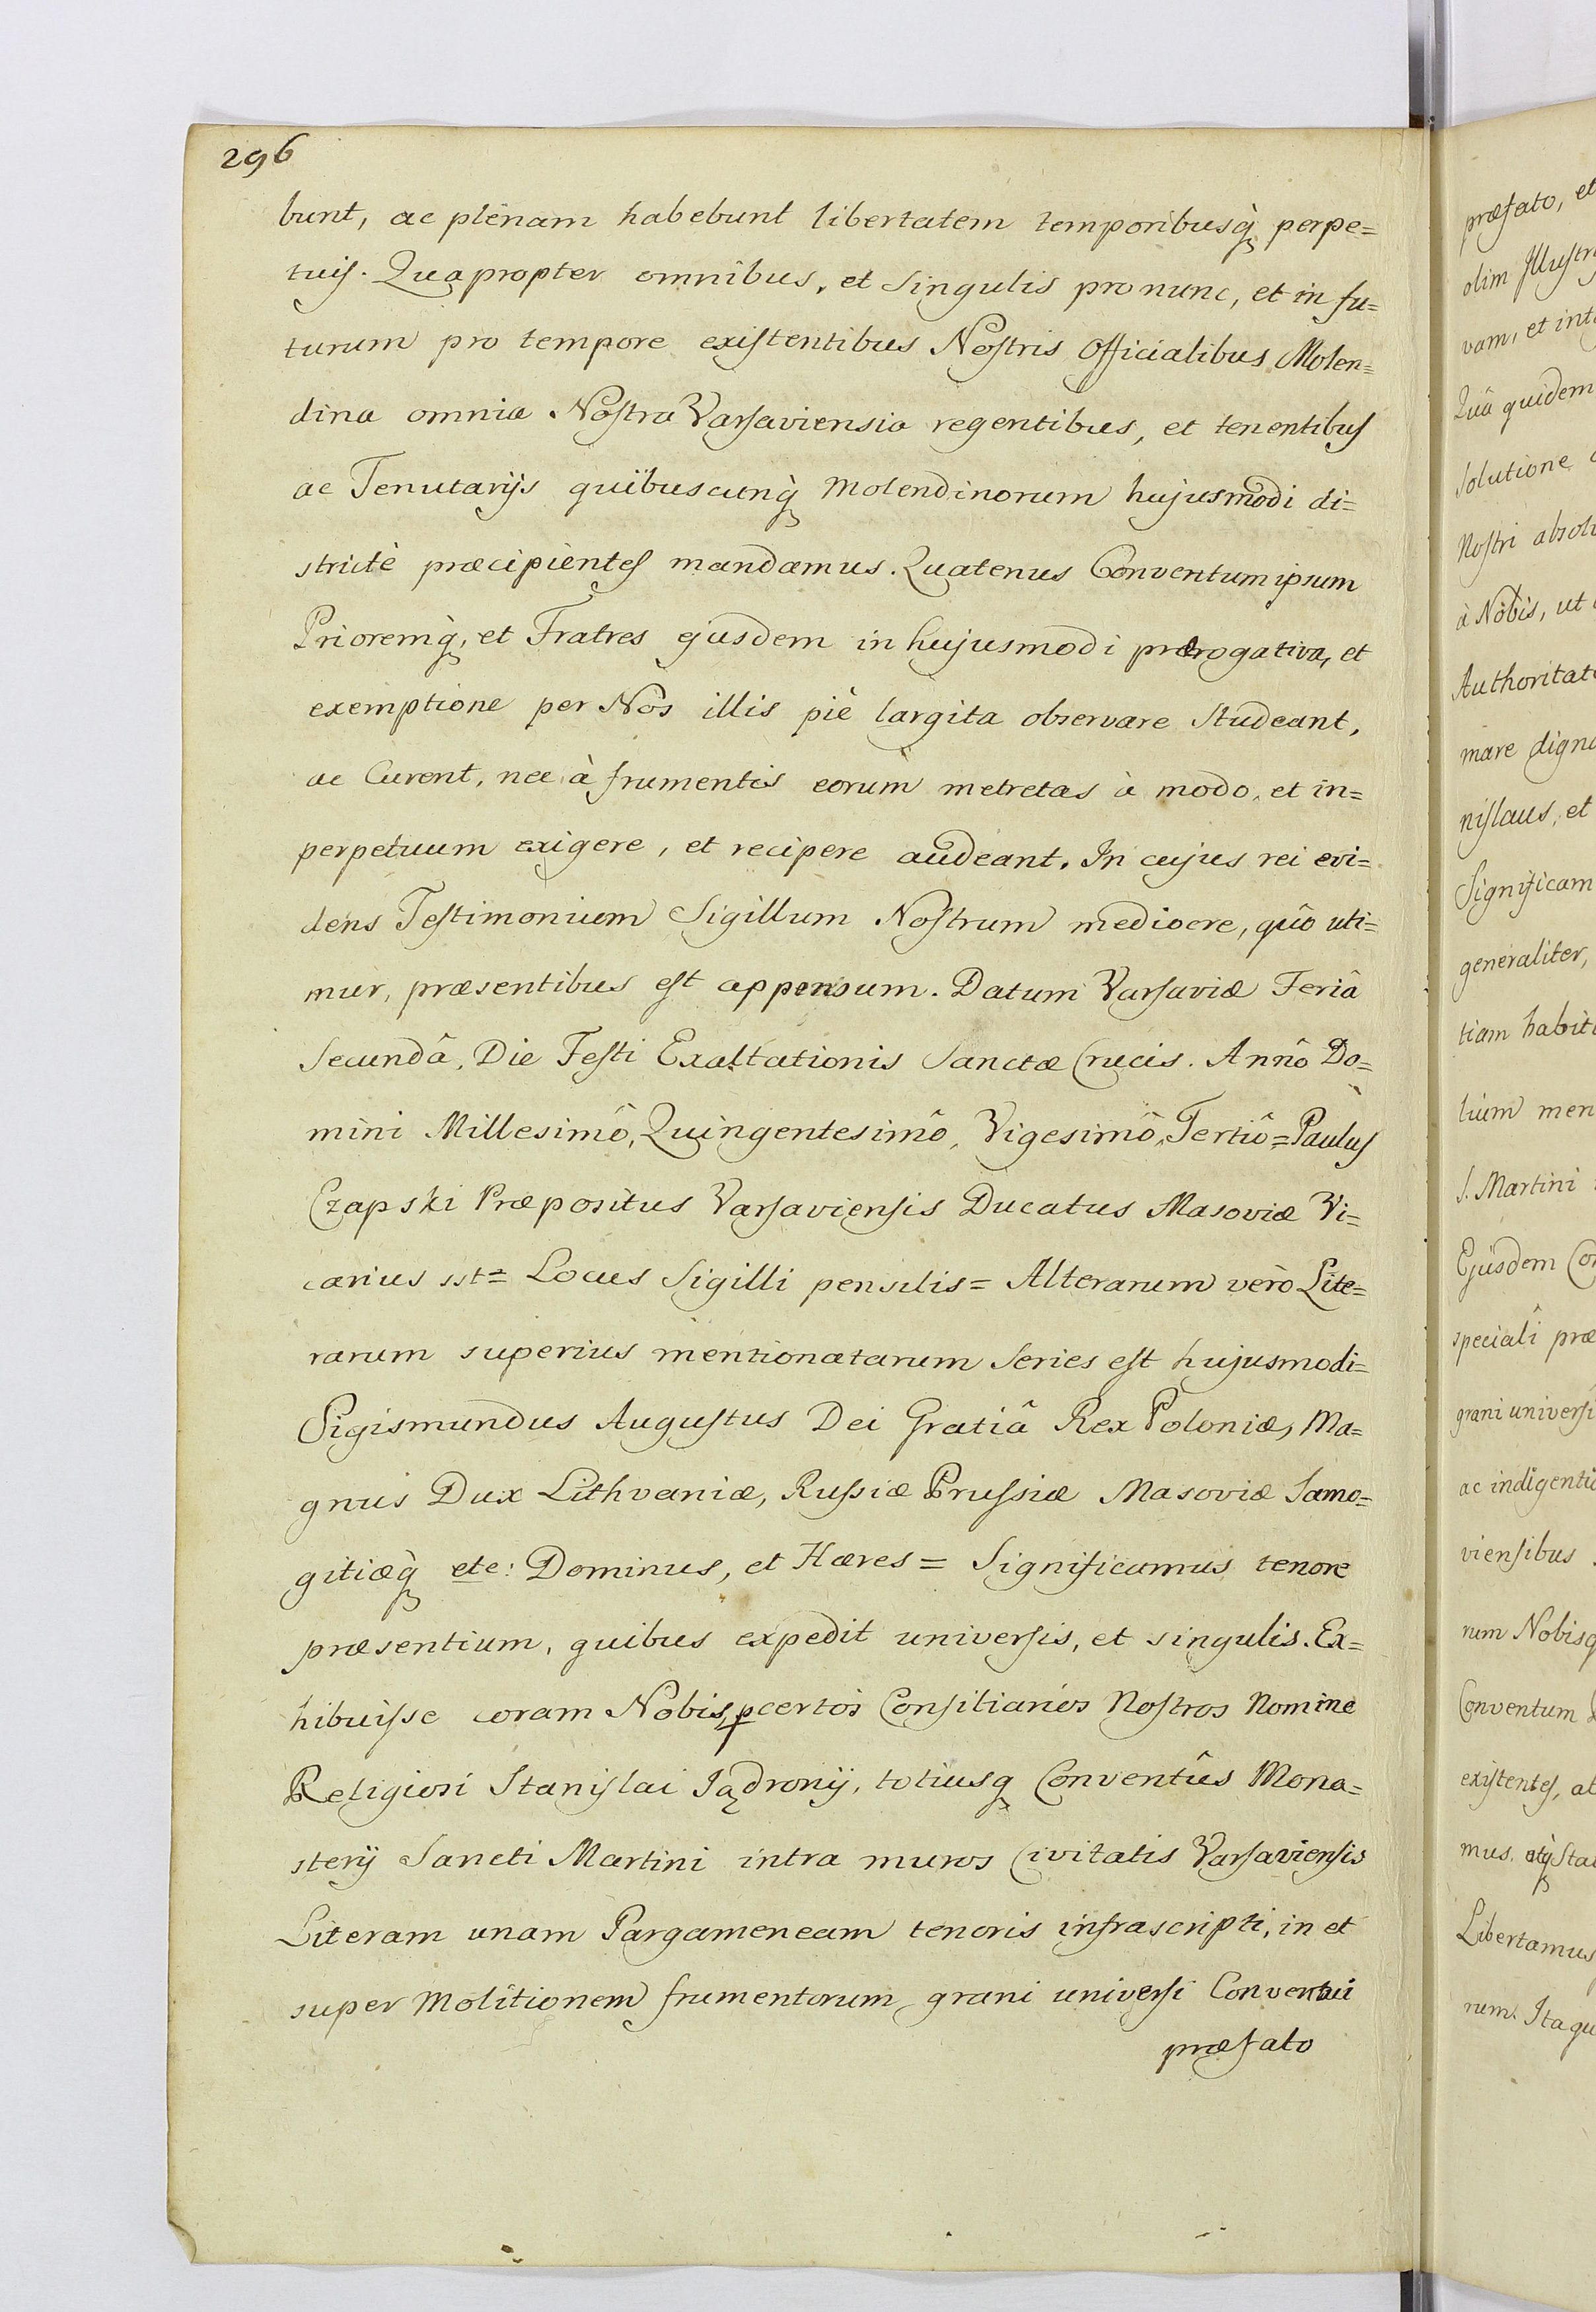 296
bunt, ac plenam habebunt libertatem temporibusq̀ perpe=
tuiſ. Quapropter omnibus, et Singulis pro nunc, et in fu=
turum pro tempore exiſtentibus Noſtris Officialibus Molen=
dina omnia Noſtra Varſaviensia regentibus, et tenentibuſ
ac Tenutarijs quibuscunq̀ Molendinorum hujusmodi di=
strictè præcipienteſ mandamus. Quatenus Conventum ipsum
Prioremq̀, et Fratres ejusdem in hujusmodi prærogativa, et
exemptione per Nos illis piè largita observare Studeant,
ac Curent, nec à frumentis eorum metretas à modo, et in=
perpetuum exigere, et recipere audeant. In cujus rei evi=
dens Teſtimonium Sigillum Noſtrum mediocre, quô uti=
mur, præsentibus eſt appensum. Datum Varſaviæ Feriâ
Secundâ, Die Feſti Exaltationis Sanctæ Crucis. Annô Do=
mini Millesimô, Quingentesimô, Vigesimô, Tertiô = Pauluſ
Czapski Præpositus Varſavienſis Ducatus Masoviæ Vi=
carius sst = Locus Sigilli pensilis = Alterarum verò Lite=
rarum superius mentionatarum Series eſt hujusmodi =
Sigismundus Auguſtus Dei Gratiâ Rex Poloniæ, Ma=
gnus Dux Lithvaniæ, Ruſsiæ Pruſsiæ Masoviæ Samo=
gitiæq̀ etc: Dominus, et Hæres = Significamus tenore
præsentium, quibus expedit univerſis, et singulis. Ex=
hibuiſse coram Nobis, ꝑ certos Conſiliarios Noſtros Nomine
Religiosi Staniſlai Jądronij, totiusq Conventûs Mona=
sterij Sancti Martini intra muros Civitatis Varſavienſis
Literam unam Pargameneam tenoris infrascripti, in et
super Molitionem frumentorum grani univerſi Conventui
præfato
præfato, et
olim Jlluſtr
vam, et int
Quâ quidem
Solutione
Noſtri absol
à Nobis, ut
Authoritat
mare digna
niſlaus, et
Significam
generaliter,
tiam habit
lium men
S. Martini
Ejusdem Co
speciali præ
grani univerſi
ac indigentia
vienſibus
rum Nobisq
Conventum
exiſtenteſ, at
mus, atq̀ Sta
Libertamus
rum. Ita qu